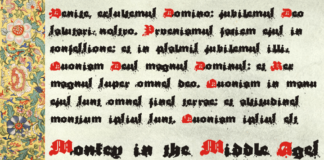 Venite, exsultemus Domino: jubilemus Deo
salutari nostro. Preveniamus faciem ejus in
confessione: et in psalmis jubilemus illi.
Quoniam Deus magnus Dominus: et Rex
magnus super omnes deos. Quoniam in manu
ejus sunt omnes fines terrae: et altitudines
montium ipsius sunt. Quoniam ipsius est
Monkey in the Middle Ages